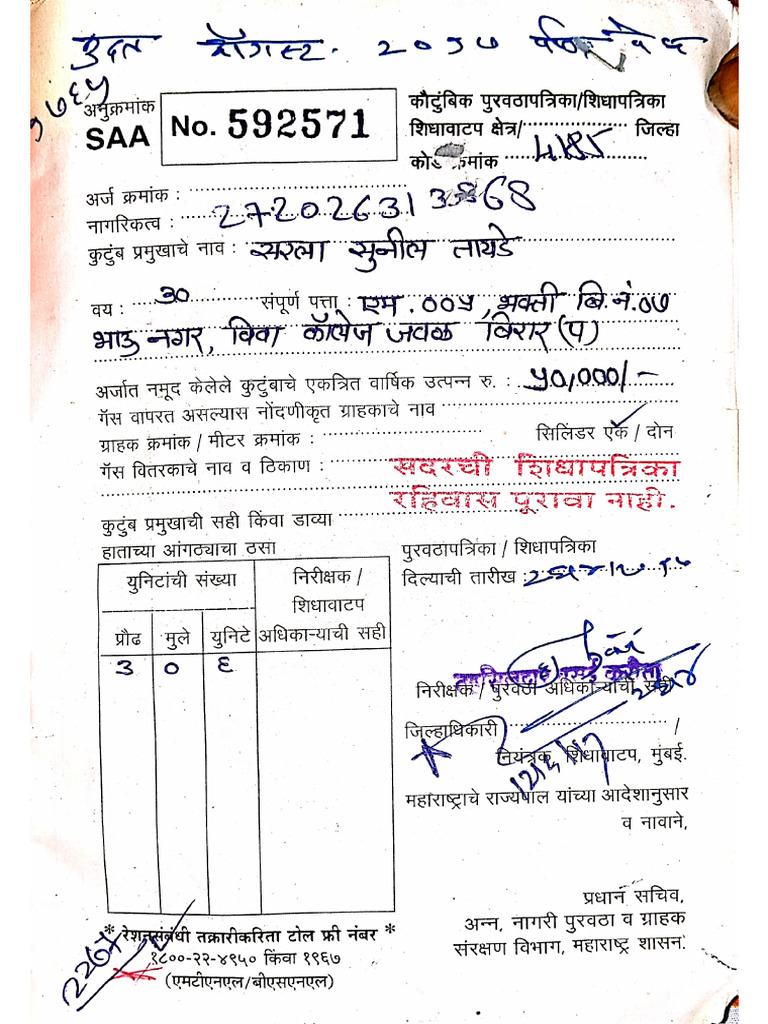 मुदत ऑगस्ट. २०१७ पर्यंत वैध
१७६५
अनुक्रमांक
SAA
No. 592571
कौटुंबिक पुरवठापत्रिका/शिधापत्रिका
शिधावाटप क्षेत्र/ जिल्हा
कोड क्रमांक 4185
अर्ज क्रमांक :
नागरिकत्व : 272026313868
कुटुंब प्रमुखाचे नाव : सरला सुनील तायडे
वय : 30 संपूर्ण पत्ता : एम. ००५, भक्ती बि. नं. ०७
भाऊ नगर, विवा कॉलेज जवळ विरार (प)
अर्जात नमूद केलेले कुटुंबाचे एकत्रित वार्षिक उत्पन्न रु. : ५0,000/-
गॅस वापरत असल्यास नोंदणीकृत ग्राहकाचे नाव
ग्राहक क्रमांक / मीटर क्रमांक : सिलिंडर एक / दोन
गॅस वितरकाचे नाव व ठिकाण :
सदरची शिधापत्रिका
रहिवास पूरावा नाही.
कुटुंब प्रमुखाची सही किंवा डाव्या
हाताच्या आंगठ्याचा ठसा
युनिटांची संख्या
निरीक्षक / शिधावाटप अधिकाऱ्याची सही
प्रौढ मुले युनिटे
३ ० ६
पुरवठापत्रिका / शिधापत्रिका
दिल्याची तारीख :
निरीक्षक / पुरवठा अधिकाऱ्याची सही
जिल्हाधिकारी /
नियंत्रक, शिधावाटप, मुंबई.
महाराष्ट्राचे राज्यपाल यांच्या आदेशानुसार
व नावाने,
प्रधान सचिव,
अन्न, नागरी पुरवठा व ग्राहक
संरक्षण विभाग, महाराष्ट्र शासन.
* रेशनसंबंधी तक्रारीकरिता टोल फ्री नंबर *
१८००-२२-४९५० किंवा १९६७
(एमटीएनएल/बीएसएनएल)